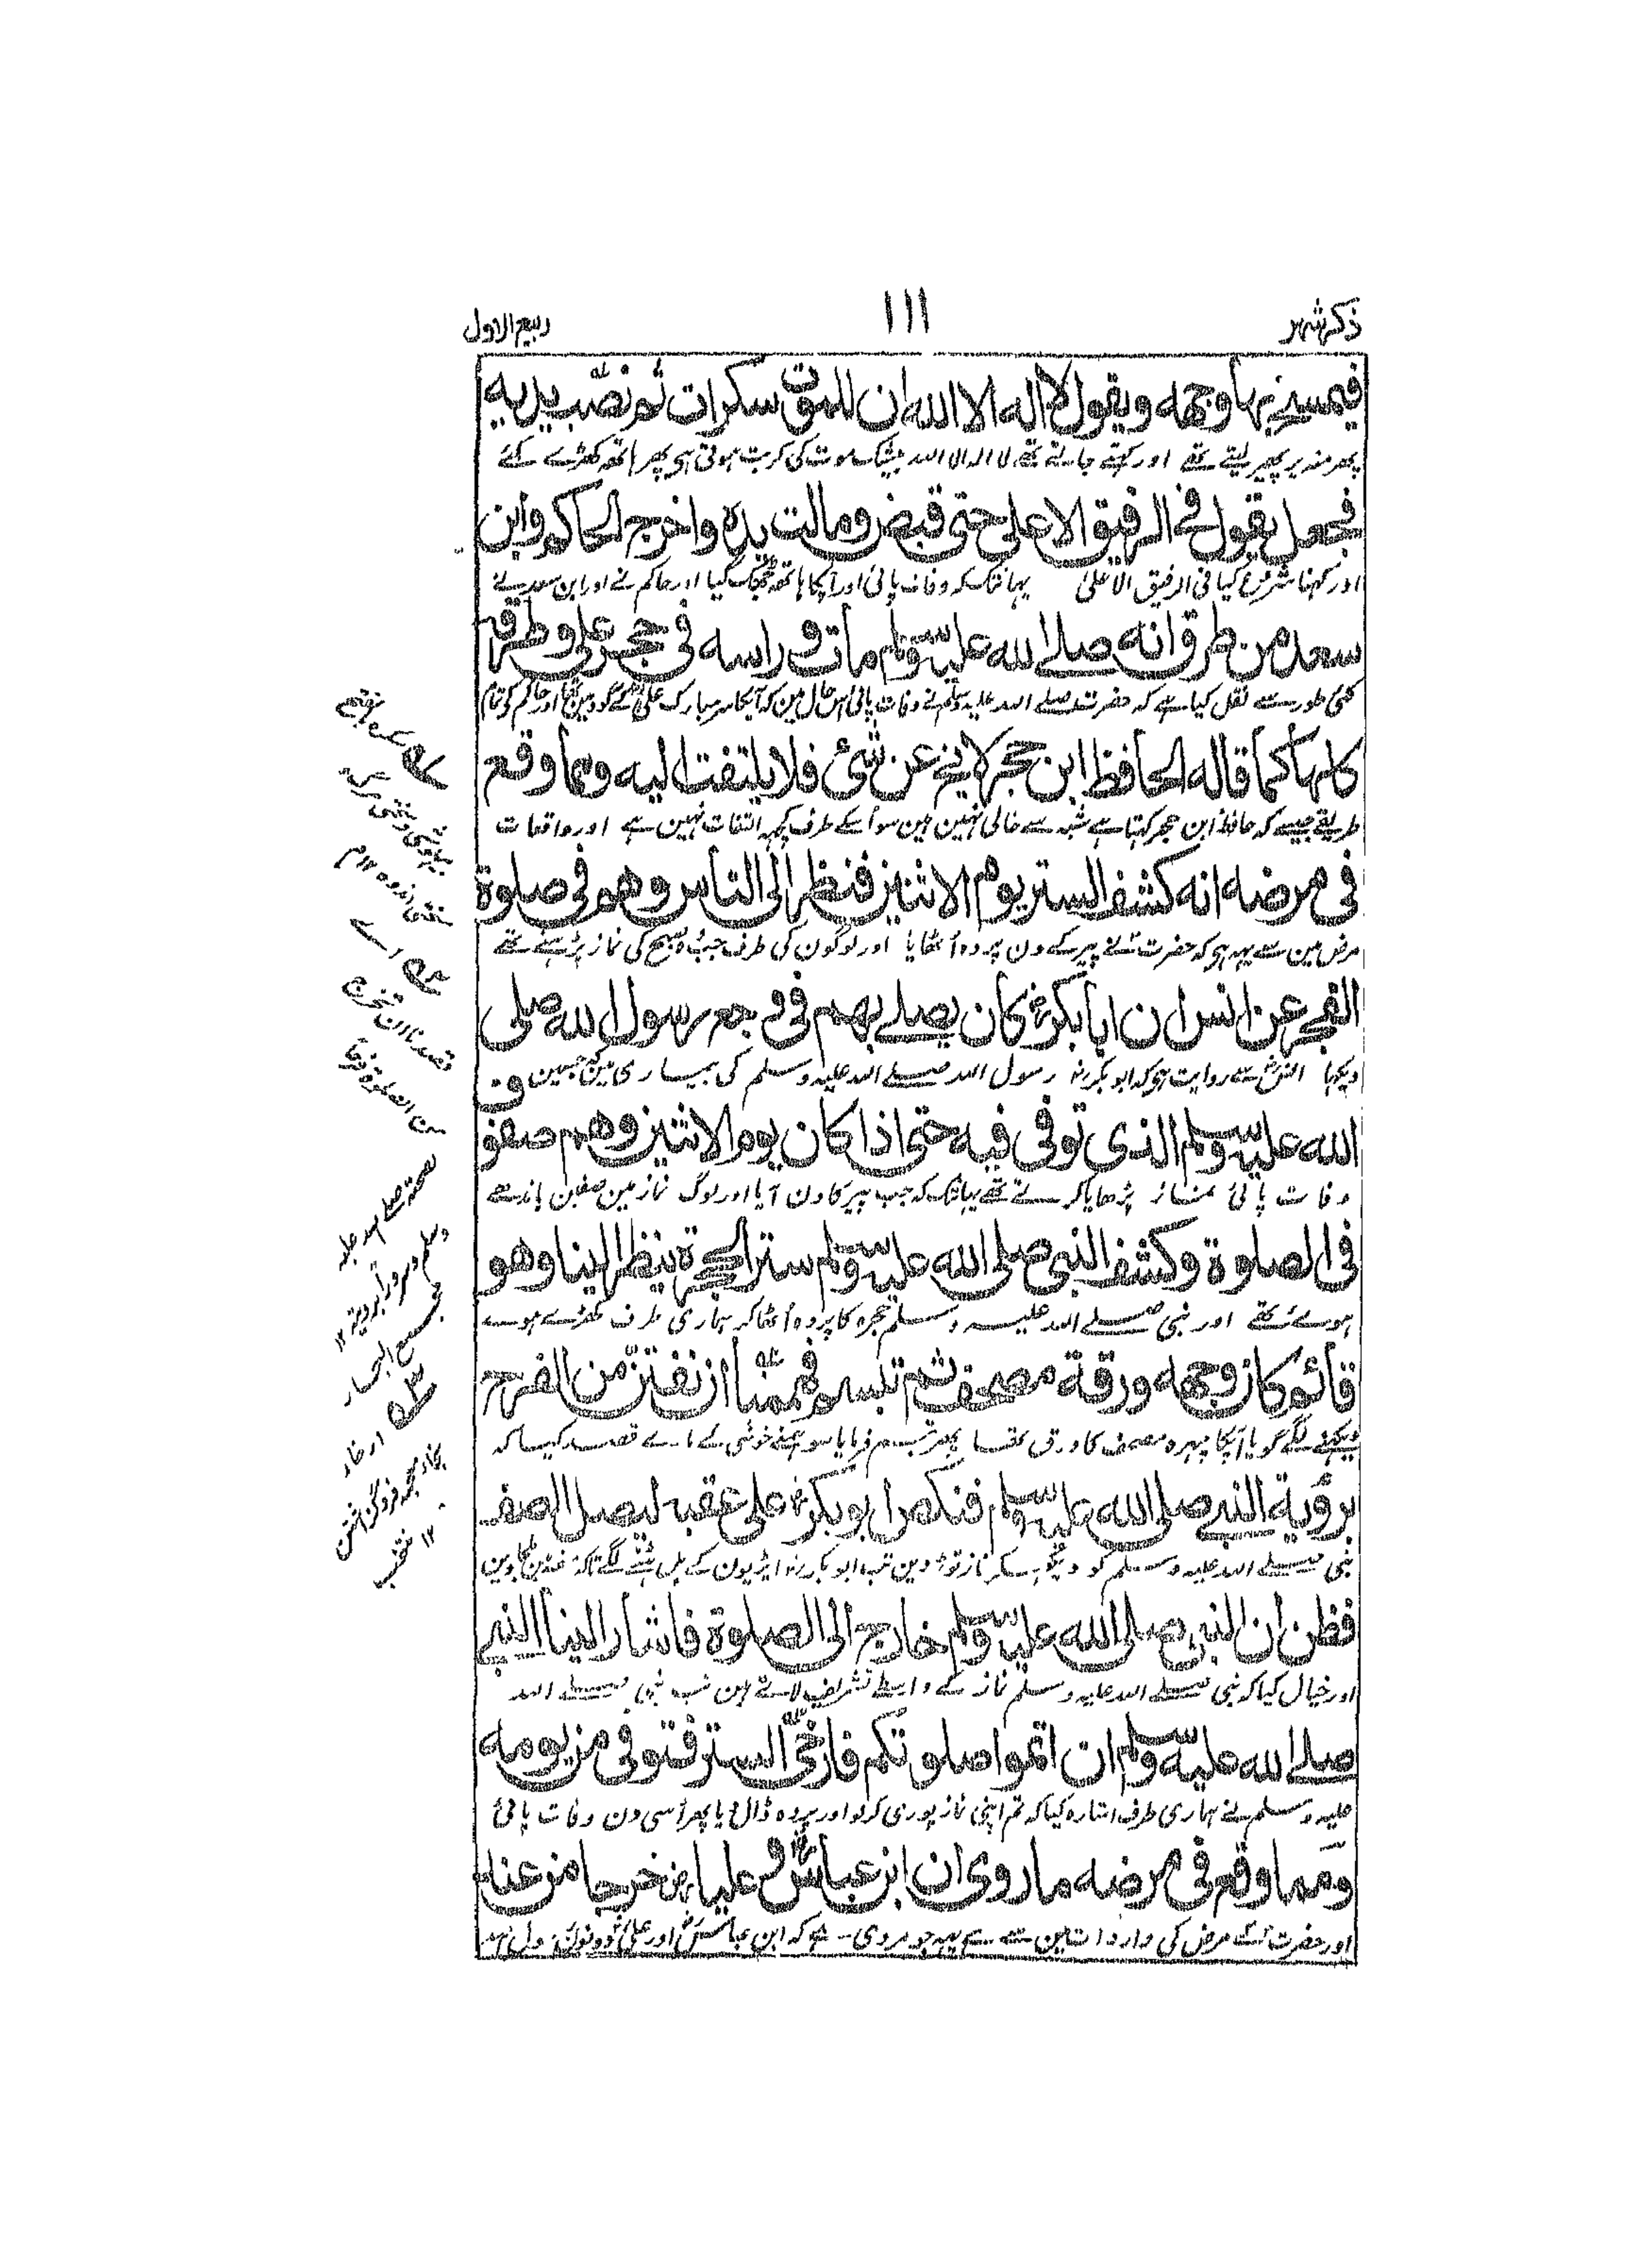 ذکر شہر
۱۱۱
ربیع الاول
فیمسح بها وجهه ویقول لا اله الا الله ان للموت سکرات ثم نصب یدیه
پھر منہ پر پھیر لیتے تھے اور کہتے جاتے تھے لا الہ الا اللہ بیشک موت کی کربت ہوتی ہی پھر ہاتھ کھڑے کئے
فجعل یقول فی الرفیق الاعلی حتی قبض ومالت یده واخرج الحاکم وابن
اور کہنا شروع کیا فی الرفیق الاعلیٰ یہانتک کہ وفات پائی اور آپکا ہاتھ جھک گیا اور حاکم نے اور ابن سعد نے
سعد من طرق انه صلی الله علیه وسلم مات وراسه فی حجر علی وطرقه
کئی طور سے نقل کیا ہے کہ حضرت صلے اللہ علیہ وسلم نے وفات پائی اس حال مین کہ آپکا سر مبارک علیؓ کے گود مین تھا اور حاکم کی تمام
کلها کما قاله الحافظ ابن حجر لا یخ عن شیٔ فلا یلتفت الیه ومما وقع
طریقے جیسے کہ حافظ ابن حجر کہتا ہے شبہ سے خالی نہین ہین سو اسکے طرف کچہہ التفات نہین ہے اور واقعات
فی مرضه انه کشف الستر یوم الاثنین فنظر الی الناس وهو فی صلوة
مرض مین سے یہہ ہی کہ حضرت نے پیر کے دن پردہ اٹھایا اور لوگون کی طرف جب وہ صبح کی نماز پڑہتے تھے
الفجر عن انس ان ابا بکرؓ کان یصلے بهم فی وجع رسول الله صلی
دیکہا انسؓ سے روایت ہی کہ ابو بکرؓ رسول اللہ صلے اللہ علیہ وسلم کی بیماری مین کہ جسمین
الله علیه وسلم الذی توفی فیه حتی اذا کان یوم الاثنین وهم صفوف
وفات پائی نماز پڑھایا کرتے تھے یہانتک کہ جب پیر کا دن آیا اور لوگ نماز مین صفین باندھے
فی الصلوة وکشف النبی صلی الله علیه وسلم ستر الحجرة ینظر الینا وهو
ہوئے تھے اور نبی صلے اللہ علیہ وسلم حجرہ کا پردہ اٹھا کر ہماری طرف کھڑے ہوے
قائم کان وجهه ورقة مصحف ثم تبسم فهممنا ان نفتتن من الفرح
دیکہنے لگے گویا آپکا چہرہ مصحف کا ورق تھا پھر تبسم فرمایا سو ہمنے خوشی کے مارے قصد کیا کہ
برؤیة النبی صلی الله علیه وسلم فنکص ابو بکرؓ علی عقبه لیصل الصف
نبی صلے اللہ علیہ وسلم کو دیکہہ کر نماز توڑ دین تب ابو بکرؓ ایڑیون کے بل ہٹنے لگے تاکہ صف مین مل جاوین
فظن ان النبی صلی الله علیه وسلم خارج الی الصلوة فاشار الینا النبی
اور خیال کیا کہ نبی صلے اللہ علیہ وسلم نماز کے واسطے تشریف لاتے ہین تب نبی صلے اللہ
صلی الله علیه وسلم ان اتموا صلوتکم فارخی الستر فتوفی من یومه
علیہ وسلم نے ہماری طرف اشارہ کیا کہ تم اپنی نماز پوری کرلو اور پردہ ڈال دیا پھر اسی دن وفات پائی
ومما وقع فی مرضه ما روی ان ابن عباسؓ وعلیاؓ خرجا من عنده
اور حضرت کے مرض کی واردات مین سے ہے یہہ جو مروی ہے کہ ابن عباسؓ اور علیؓ دونون
قصدنا ان نخرج
من الصلوة فرحا
بصحته صلے اللہ علیہ
وسلم وسرورا برویته ۱۲
مجمع البحار
ارخاء
۱۲ منتخب